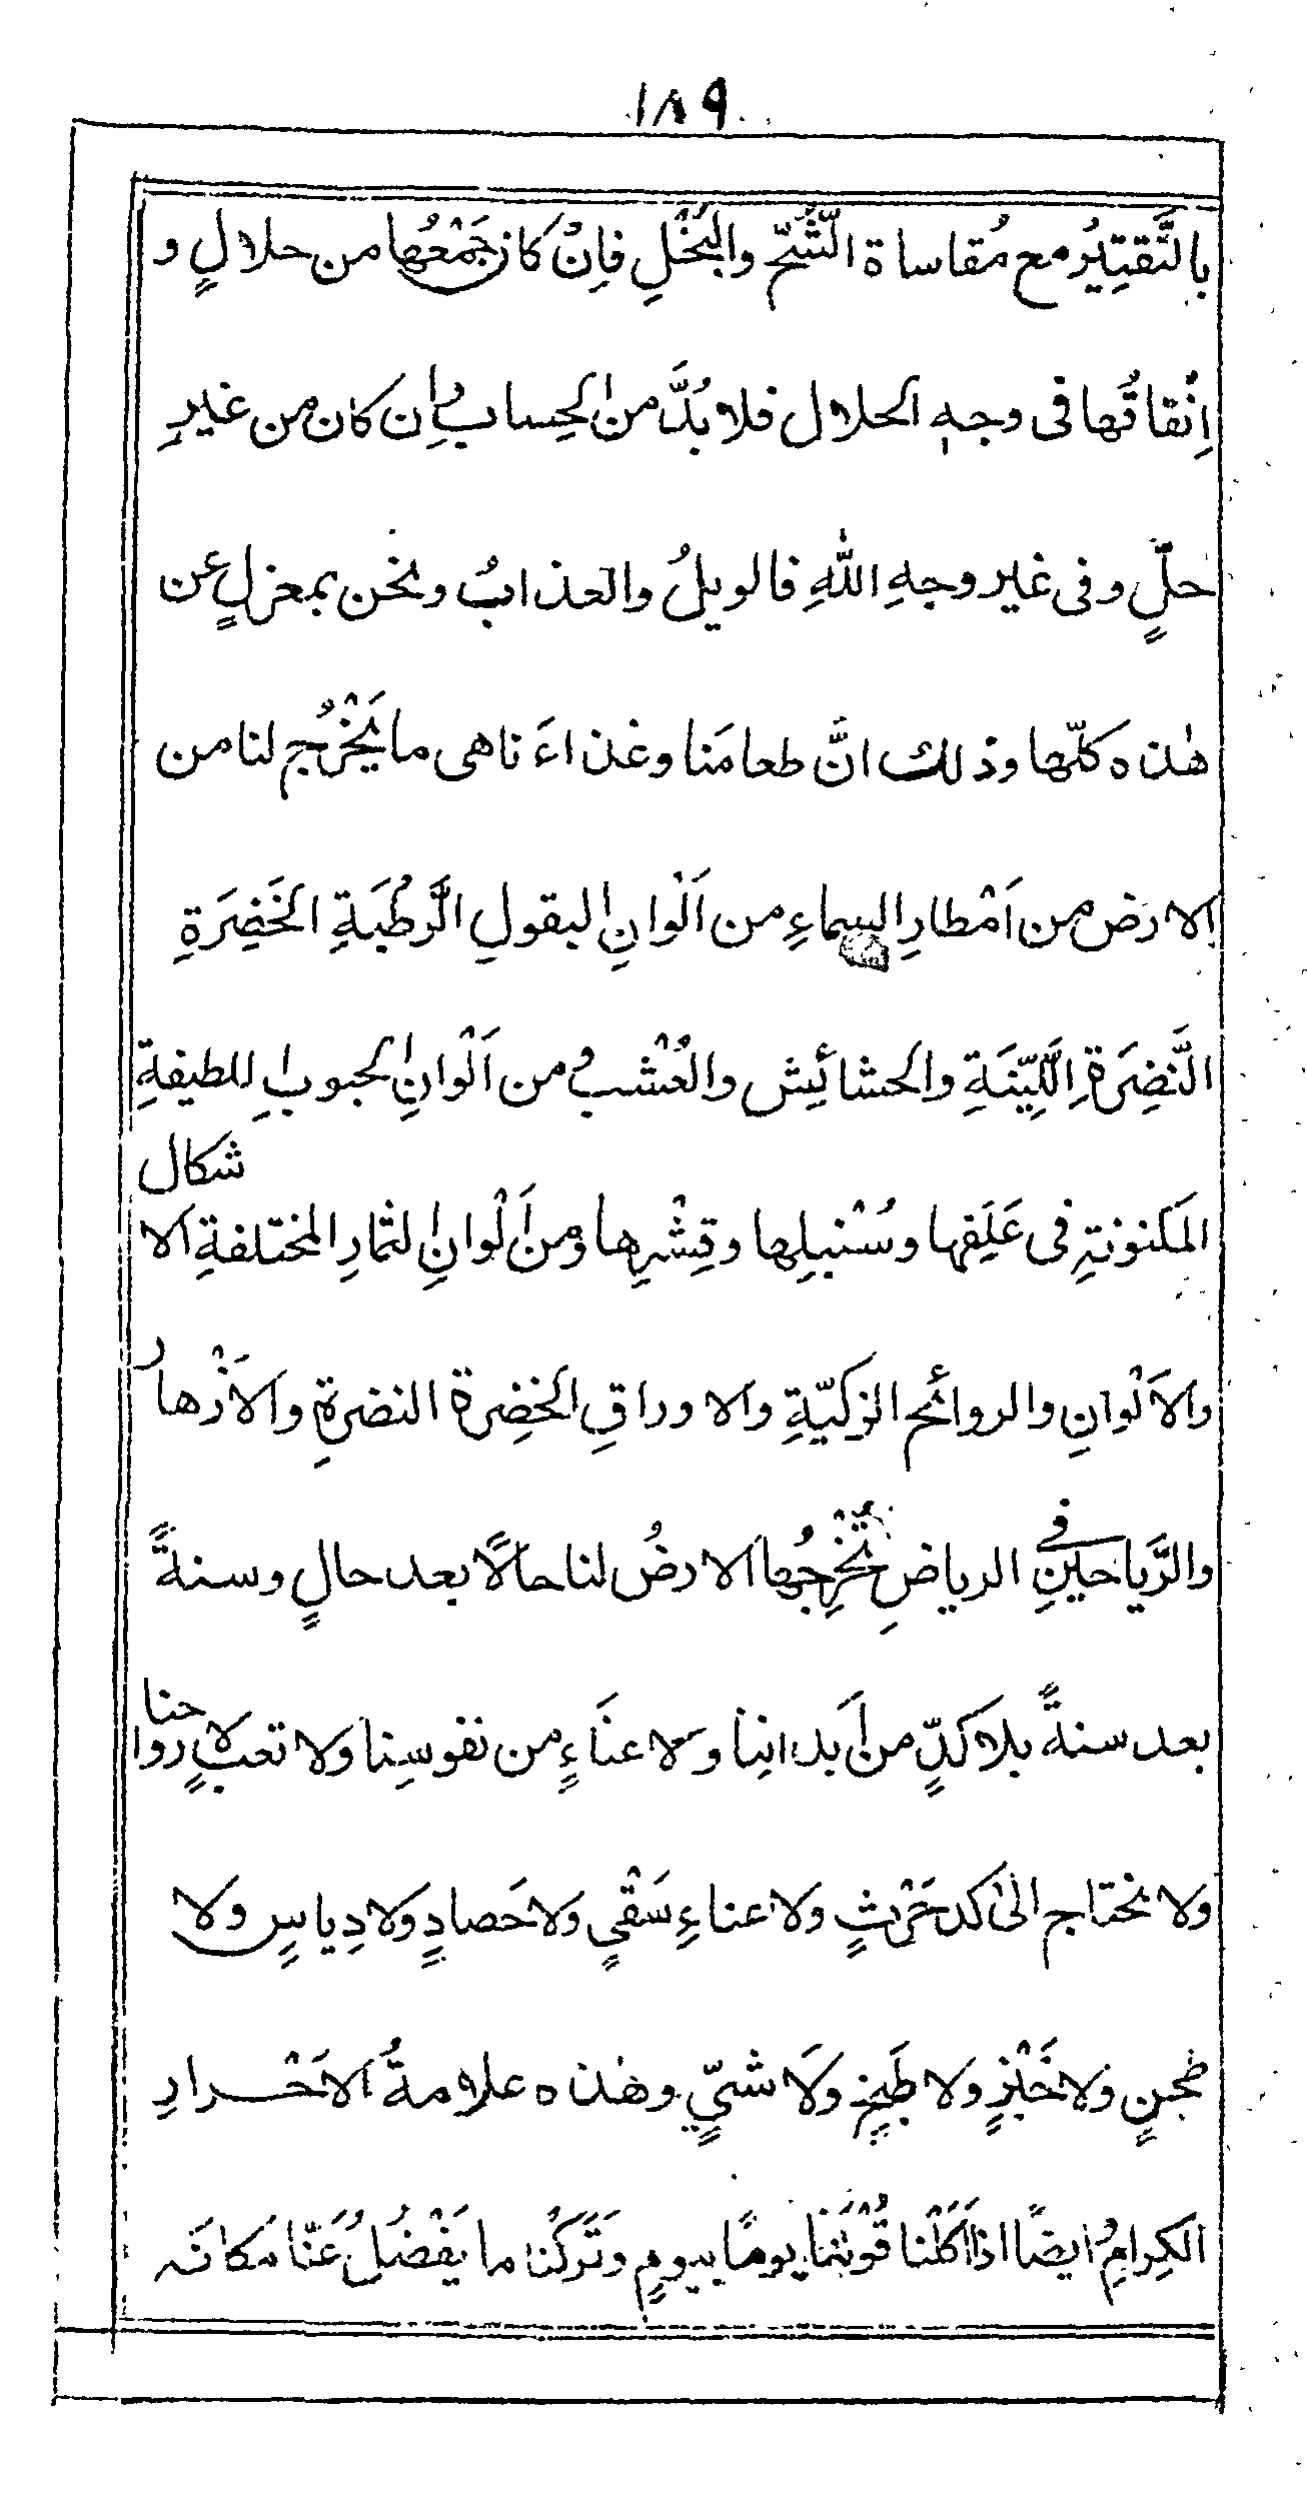 ١٨٩
بالتَّقتِيُر مع مُقاساة الشُّحّ والبُخْلِ فاِنْ كان جَمْعُها من حلالٍ و
اِنْفاقُها فى وجهِ الحلال فلا بُدَّ من الحِساب وان كان من غيرِ
حلٍّ وفى غير وجهِ اللّٰهِ فالويلُ والعذابُ ونحن بمعزلٍ عن
هٰذه كلّها وذلك انَّ طعامَنا وغذاءَنا هى ما يَخْرُج لنا من
الارض من اَمْطارِ السماءِ من اَلْوانِ البقولِ الرَّطْبَةِ الخَضِرَةِ
النَّضِرَةِ اللَّيِّنَةِ والحشائِش والعُشْبُ من اَلْوانِ الحبوبِ اللطيفةِ
المَكنونةِ فى عَلَفِها وسُنْبلِها وقِشْرِها ومن اَلْوانِ الثمارِ المختلفةِ الاشكال
والاَلْوانِ والروائح الزكيّةِ والاوراقِ الخضِرة النضرةِ والاَزْهارُ
والرَّياحينِ فى الرياضِ تُخْرِجُها الارضُ لنا حالًا بعد حالٍ وسنةً
بعد سنةً بلا كدٍّ من اَبدانِنا ولا عنَاءٍ من نفوسِنا ولا تعبٍ لارواحنا
ولا نحتاج الىٰ كد حَرْثٍ ولا عناءِ سَقْىٍ ولا حَصادٍ ولا دِياسٍ ولا
طحنٍ ولا خَبْزٍ ولا طَبخٍ ولَا شىٍّ وهٰذه علامةُ الاَحْرارِ
الكِرامِ ايضًا اذا اَكَلْنا قُوْتَنا يومًا بيومٍ وَتَرَكْنا ما يَفْضُلُ عَنّا مَكانَه